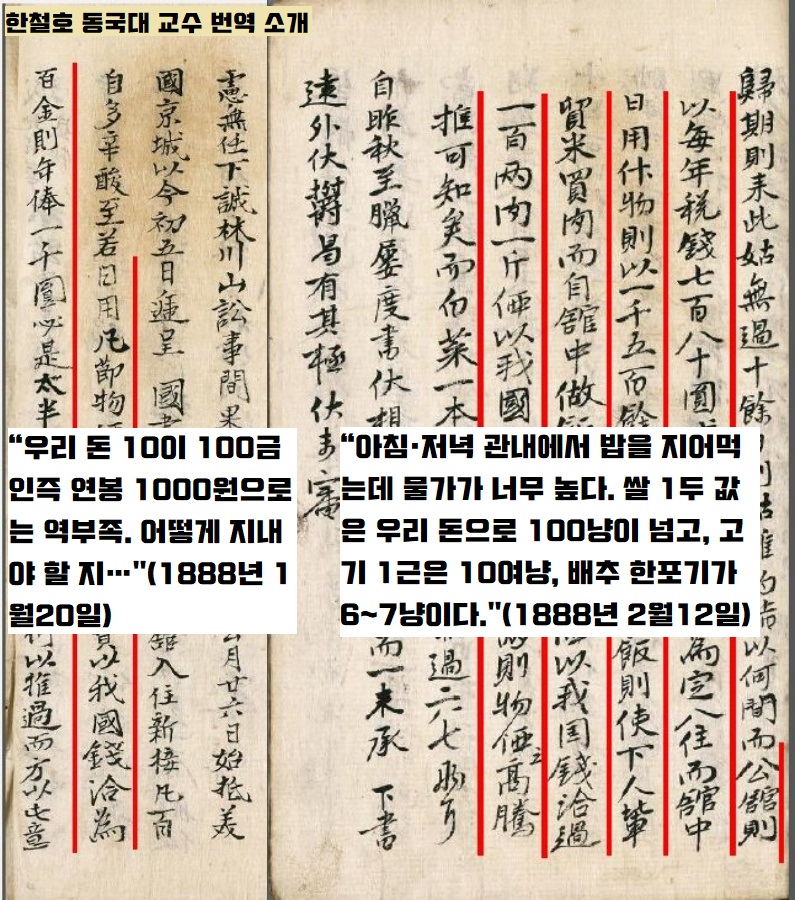 한철호 동국대 교수 번역 소개
歸期則未此姑無過十餘
以何間而公館則
以每年稅錢七百八十圓
為定入住而館中
日用什物則以一千五百餘
飯則使下人輩
貿米買肉而自館中做
以我国錢洽過
一百兩肉一斤価以我國
則物価之高騰
推可知矣而白菜一本
過六七兩
自昨秋至臘屢度書伏想
而一未承 下書
遠外伏鬱曷有其極伏未審
慮無任下誠林川山訟事間果
月廿六日始抵美
國京城以今初五日進呈 國書
館入住新接凡百
自多辛酸至若日用凡節物
以我國錢洽為
百金則年俸一千圓必是太半
何以推過而方以此意
“우리 돈 10이 100금
인즉 연봉 1000원으로
는 역부족. 어떻게 지내
야 할 지…"(1888년 1
월20일)
“아침·저녁 관내에서 밥을 지어먹
는데 물가가 너무 높다. 쌀 1두 값
은 우리 돈으로 100냥이 넘고, 고
기 1근은 10여냥, 배추 한포기가
6~7냥이다."(1888년 2월12일)